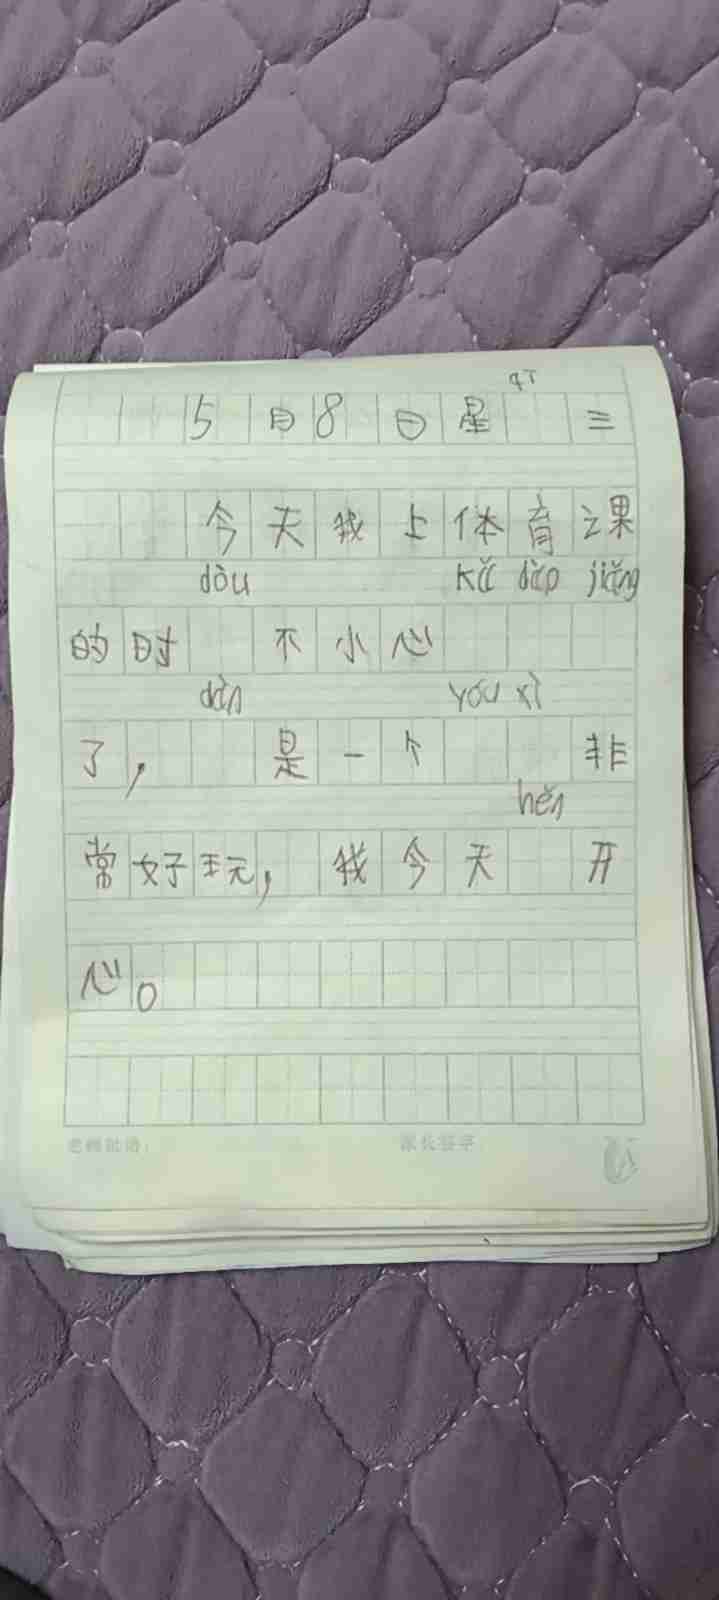 qī
5月8日星 三
今天我上体育课
dòu kǎi dào jiǎng
的时 不小心
dàn yóu xì
了, 是一个 非
hěn
常好玩,我今天 开
心。
老师批语: 家长签字: